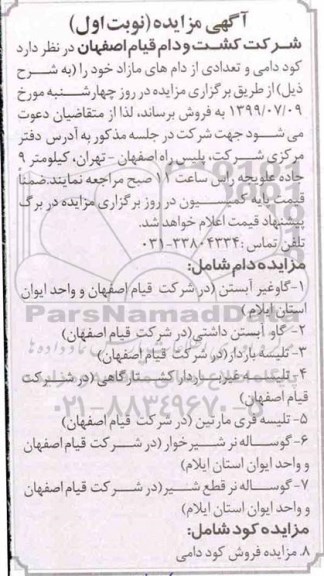 آگهی مزایده (نوبت اول)
شرکت کشت و دام قیام اصفهان در نظر دارد
کود دامی و تعدادی از دام های مازاد خود را (به شرح
ذیل) از طریق برگزاری مزایده در روز چهارشنبه مورخ
۱۳۹۹/۰۷/۰۹ به فروش برساند، لذا از متقاضیان دعوت
می شود جهت شرکت در جلسه مذکور به آدرس دفتر
مرکزی شرکت، پلیس راه اصفهان - تهران، کیلومتر ۹
جاده علویجه راس ساعت ۱۱ صبح مراجعه نمایند. ضمناً
قیمت پایه کمیسیون در روز برگزاری مزایده در برگ
پیشنهاد قیمت اعلام خواهد شد.
تلفن تماس: ۳۳۸۰۴۳۳۴-۰۳۱
مزایده دام شامل:
۱- گاو غیر آبستن (در شرکت قیام اصفهان و واحد ایوان
استان ایلام)
ParsNamadData
۲- گاو آبستن داشتی (در شرکت قیام اصفهان)
۳- تلیسه باردار (در شرکت قیام اصفهان)
۴- تلیسه غیر باردار کشتارگاهی (در شرکت
قیام اصفهان)
۰۲۱-۸۸۳۴۹۶۷۰-۵
۵- تلیسه فری مارتین (در شرکت قیام اصفهان)
۶- گوساله نر شیرخوار (در شرکت قیام اصفهان
و واحد ایوان استان ایلام)
۷- گوساله نر قطع شیر (در شرکت قیام اصفهان
و واحد ایوان استان ایلام)
مزایده کود شامل:
۸. مزایده فروش کود دامی